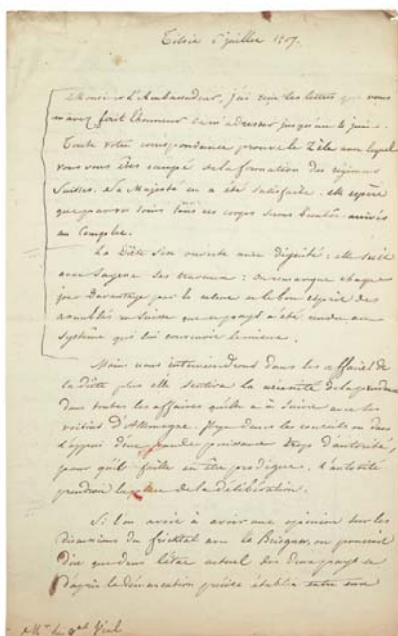 Tilsit 5 juillet 1807.
Monsieur l'Ambassadeur, j'ai reçu les lettres que vous
m'avez fait l'honneur de m'adresser jusqu'au juin.
Toute votre correspondance prouve le zèle avec lequel
vous vous êtes occupé de la formation des régimens
Suisses. Sa Majesté en a été satisfaite. elle espère
que par vos soins tous ces corps seront bientôt arrivés
au Complet.
La Diète s'est ouverte avec dignité: elle suit
avec sagesse ses travaux: on remarque chaque
jour davantage par le calme et le bon esprit des
en Suisse que ce pays a été rendu au
système qui lui convenoit le mieux.
Moins nous interviendrons dans les affaires de
la diète plus elle sentira la nécessité de la prudence
dans toutes les affaires qu'elle a à suivre avec les
d'Allemagne. Il y a dans les conseils ou dans
l'appui d'une grande puissance trop d'autorité,
pour qu'il faille en être prodigue. L'autorité
prendroit la place de la délibération.
Si l'on avoit à avoir une opinion sur les
discussions du fricktal avec le Brisgaw, on pourroit
dire que dans l'état actuel des deux pays et
d'après la démarcation précise établie entre eux
Mr. le gal Vial